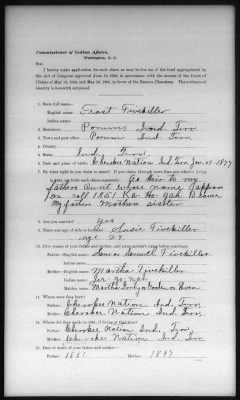 Commissioner of Indian Affairs,
Washington, D. C.
Sir:
I hereby make application for such share as may be due me of the fund appropriated by
the Act of Congress approved June 30, 1906, in accordance with the decrees of the Court of
Claims of May 18, 1905, and May 28, 1906, in favor of the Eastern Cherokees. The evidence of
identity is herewith subjoined.
1. State full name—
English name: Frost Tivekiller
Indian name:
2. Residence: Porum Ind. Terr
3. Town and post office: Porum Ind. Terr
4. County:
5. State: Ind. Terr.
6. Date and place of birth: Cherokee Nation Ind Terr Jan 27 1877
7. By what right do you claim to share? If you claim through more than one relative living
in 1851, set forth each claim separately: As Heir to my
fathers Aunt whose name appears
on roll 1851 Ka Ho gah Beaver
My father Mothers sister
8. Are you married? Yes
9. Name and age of wife or husband: Susie Tivekiller
age 29.
10. Give names of your father and mother, and your mother's name before marriage.
Father—English name: Samuel Tivekiller
Indian name:
Mother—English name: Martha Tivekiller
Indian name:
Maiden name: Martha
11. Where were they born?
Father: Cherokee Nation Ind. Terr.
Mother: Cherokee Nation Ind. Terr.
12. Where did they reside in 1851, if living at that time?
Father: Cherokee Nation Ind. Terr.
Mother: Cherokee Nation Ind. Terr
13. Date of death of your father and mother—
1881 1887